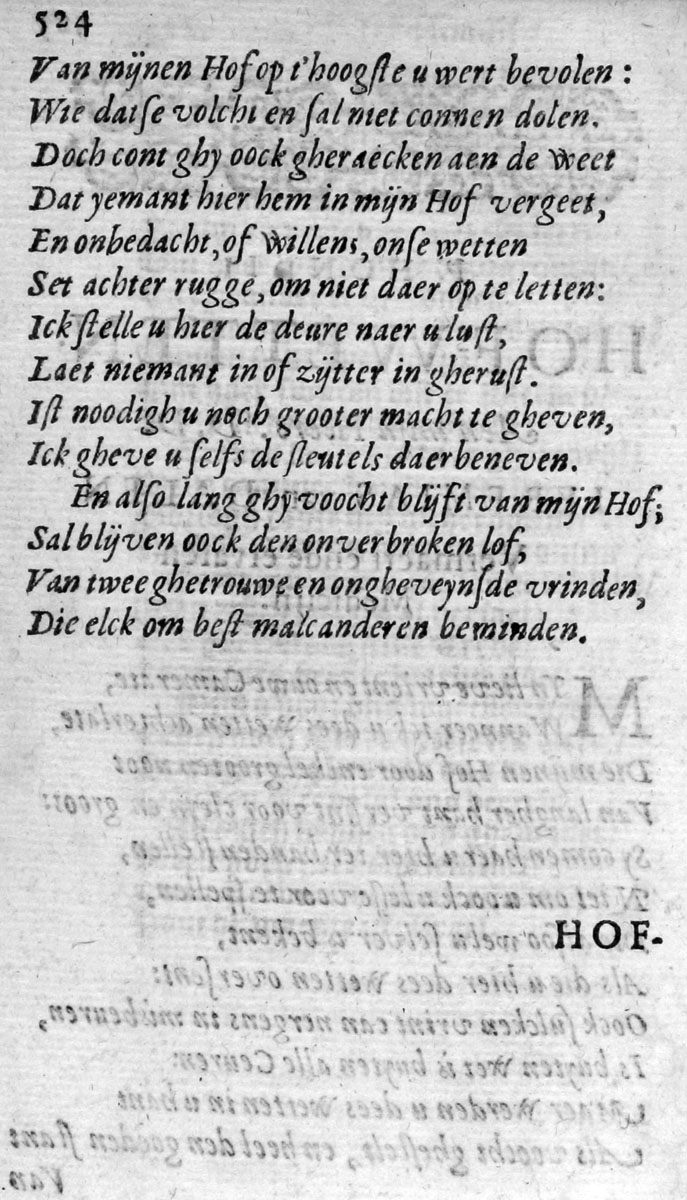 524
Van mijnen Hof op t'hoogſte u wert bevolen :
Wie datſe volcht en ſal niet connen dolen.
Doch cont ghy oock gheraecken aen de weet
Dat yemant hier hem in mijn Hof vergeet,
En onbedacht, of willens, onſe wetten
Set achter rugge, om niet daer op te letten:
Ick ſtelle u hier de deure naer u luſt,
Laet niemant in of zijtter in gheruſt.
Iſt noodigh u noch grooter macht te gheven,
Ick gheve u ſelfs de ſleutels daerbeneven.
En alſo lang ghy voocht blijft van mijn Hof;
Sal blijven oock den onverbroken lof,
Van twee ghetrouwe en ongheveynſde vrinden,
Die elck om beſt malcanderen beminden.
HOF-